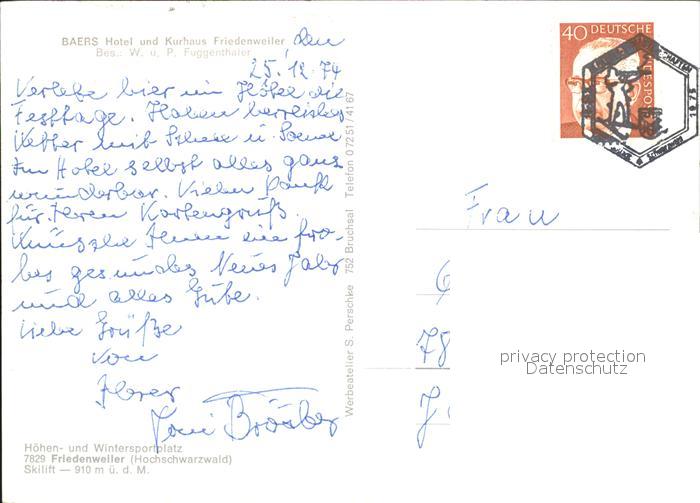 BAERS Hotel und Kurhaus Friedenweiler, den
Bes.: W. u. P. Fuggenthaler
25.12.74
Verlebe hier im Hotel die
Festtage. Haben herrliches
Wetter mit Schnee u. Sonne
Im Hotel selbst alles ganz
wunderbar. Vielen Dank
für Ihren Kartengruß.
Wünsche Ihnen ein fro-
hes gesundes Neues Jahr
und alles Gute.
Liebe Grüße
von
Ihrer
Höhen- und Wintersportplatz
7829 Friedenweiler (Hochschwarzwald)
Skilift — 910 m ü. d. M.
Werbeatelier S. Perschke 752 Bruchsal Telefon 07251/4167
40 DEUTSCHE
BUNDESPOST
Frau
78
privacy protection
Datenschutz